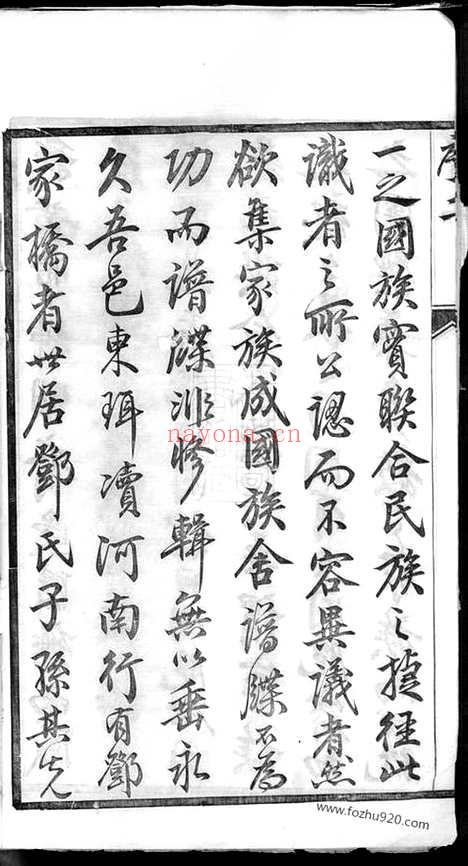 序二
一之國族實聯合民族之捷徑此
識者之所公認而不容異議者然
欲集家族成國族舍譜牒不為
功而譜牒非修輯無以垂永
久吾邑東珥瀆河南行有鄧
家橋者世居鄧氏子孫其先
nayona.cn
www.fozhu920.com